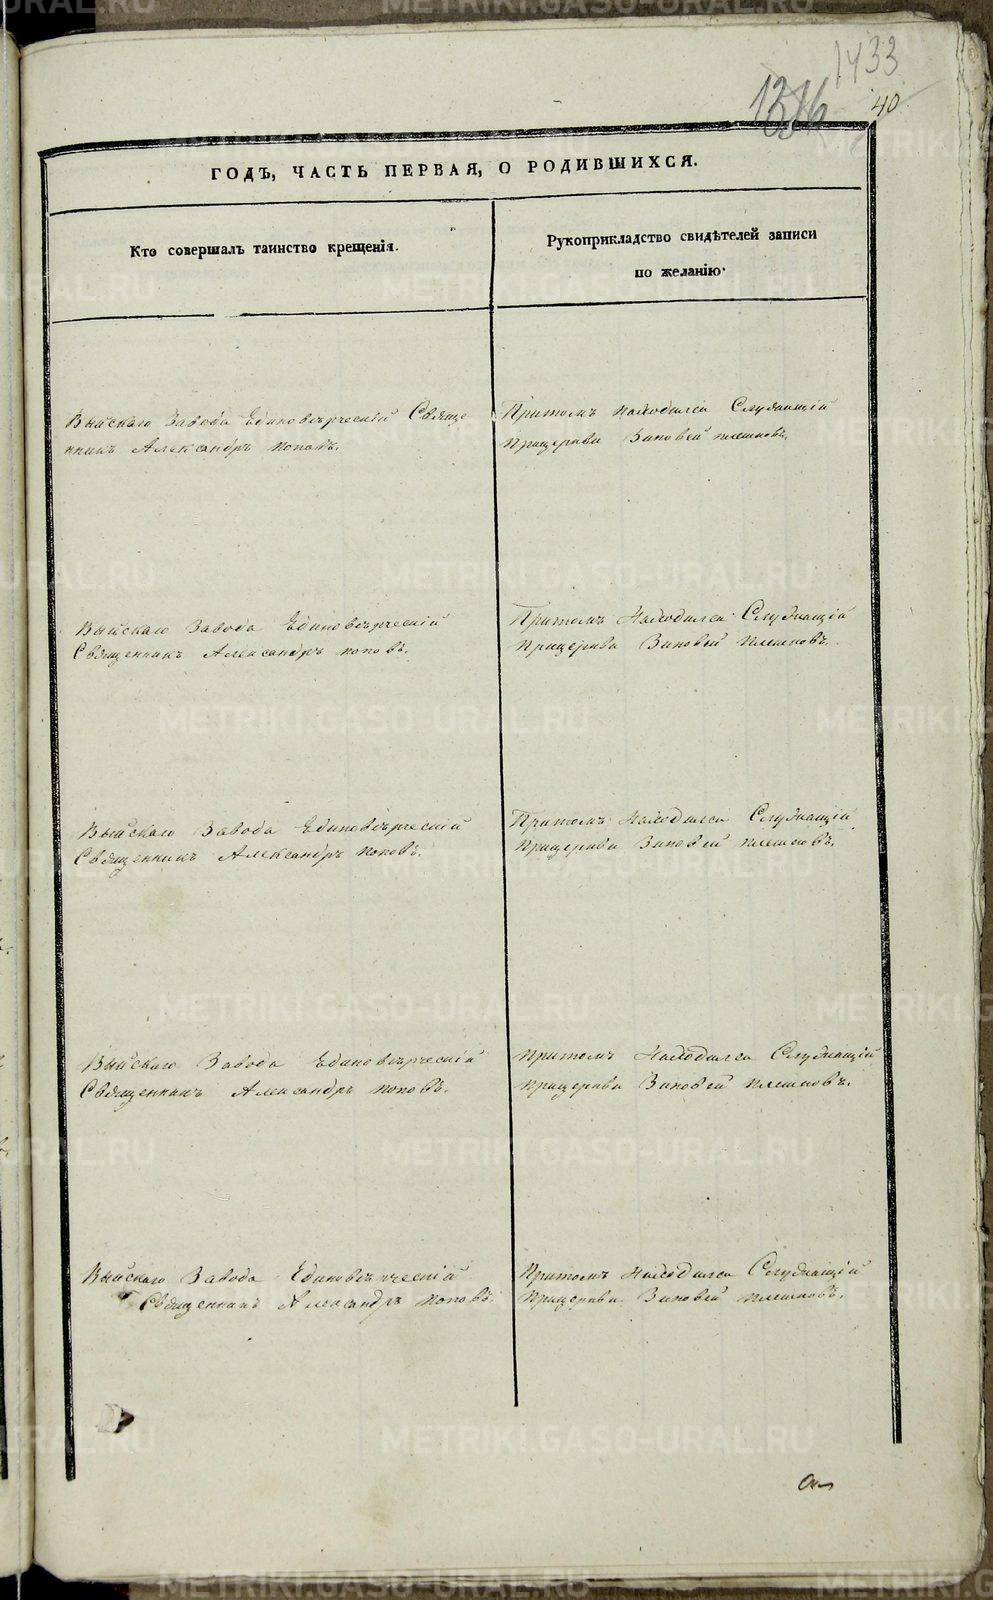 1433
40
ГОДЪ, ЧАСТЬ ПЕРВАЯ, О РОДИВШИХСЯ.
Кто совершалъ таинство крещенія.
Рукоприкладство свидѣтелей записи
по желанію.
Выйскаго Завода Единоверческій Свяще
нникъ Александръ поповъ.
Притомъ находился Служащій
прицеркви Зиновей плешковъ.
Выйскаго Завода Единоверческій
Священникъ Александръ поповъ.
Притомъ Находился Служащій
прицеркви Зиновей плешковъ.
Выйскаго Завода Единоверческій
Священникъ Александръ поповъ.
Притомъ Находился Служащій
прицеркви Зиновей плешковъ.
Выйскаго Завода Единоверческій
Священникъ Александръ поповъ.
притомъ Находился Служащій
прицеркви Зиновей плешковъ.
Выйскаго Завода Единоверческій
Священникъ Александръ поповъ.
притомъ Находился Служащій
прицеркви Зиновей плешковъ.
METRIKI.GASO-URAL.RU